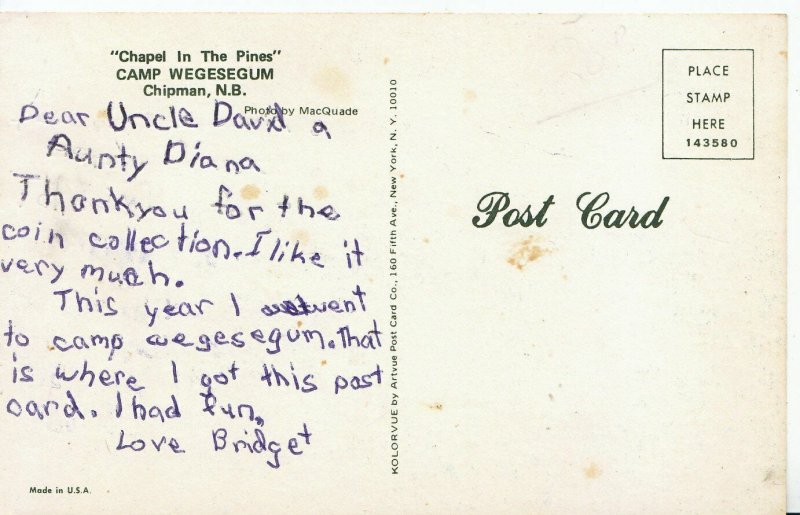 "Chapel In The Pines"
CAMP WEGESEGUM
Chipman, N.B.
Photo by MacQuade
Dear Uncle David a
Aunty Diana
Thankyou for the
coin collection. I like it
very much.
This year I went
to camp wegesegum. That
is where I got this post
card. I had fun.
Love Bridget
Made in U.S.A.
KOLORVUE by Artvue Post Card Co., 160 Fifth Ave., New York, N. Y. 10010
PLACE
STAMP
HERE
143580
Post Card